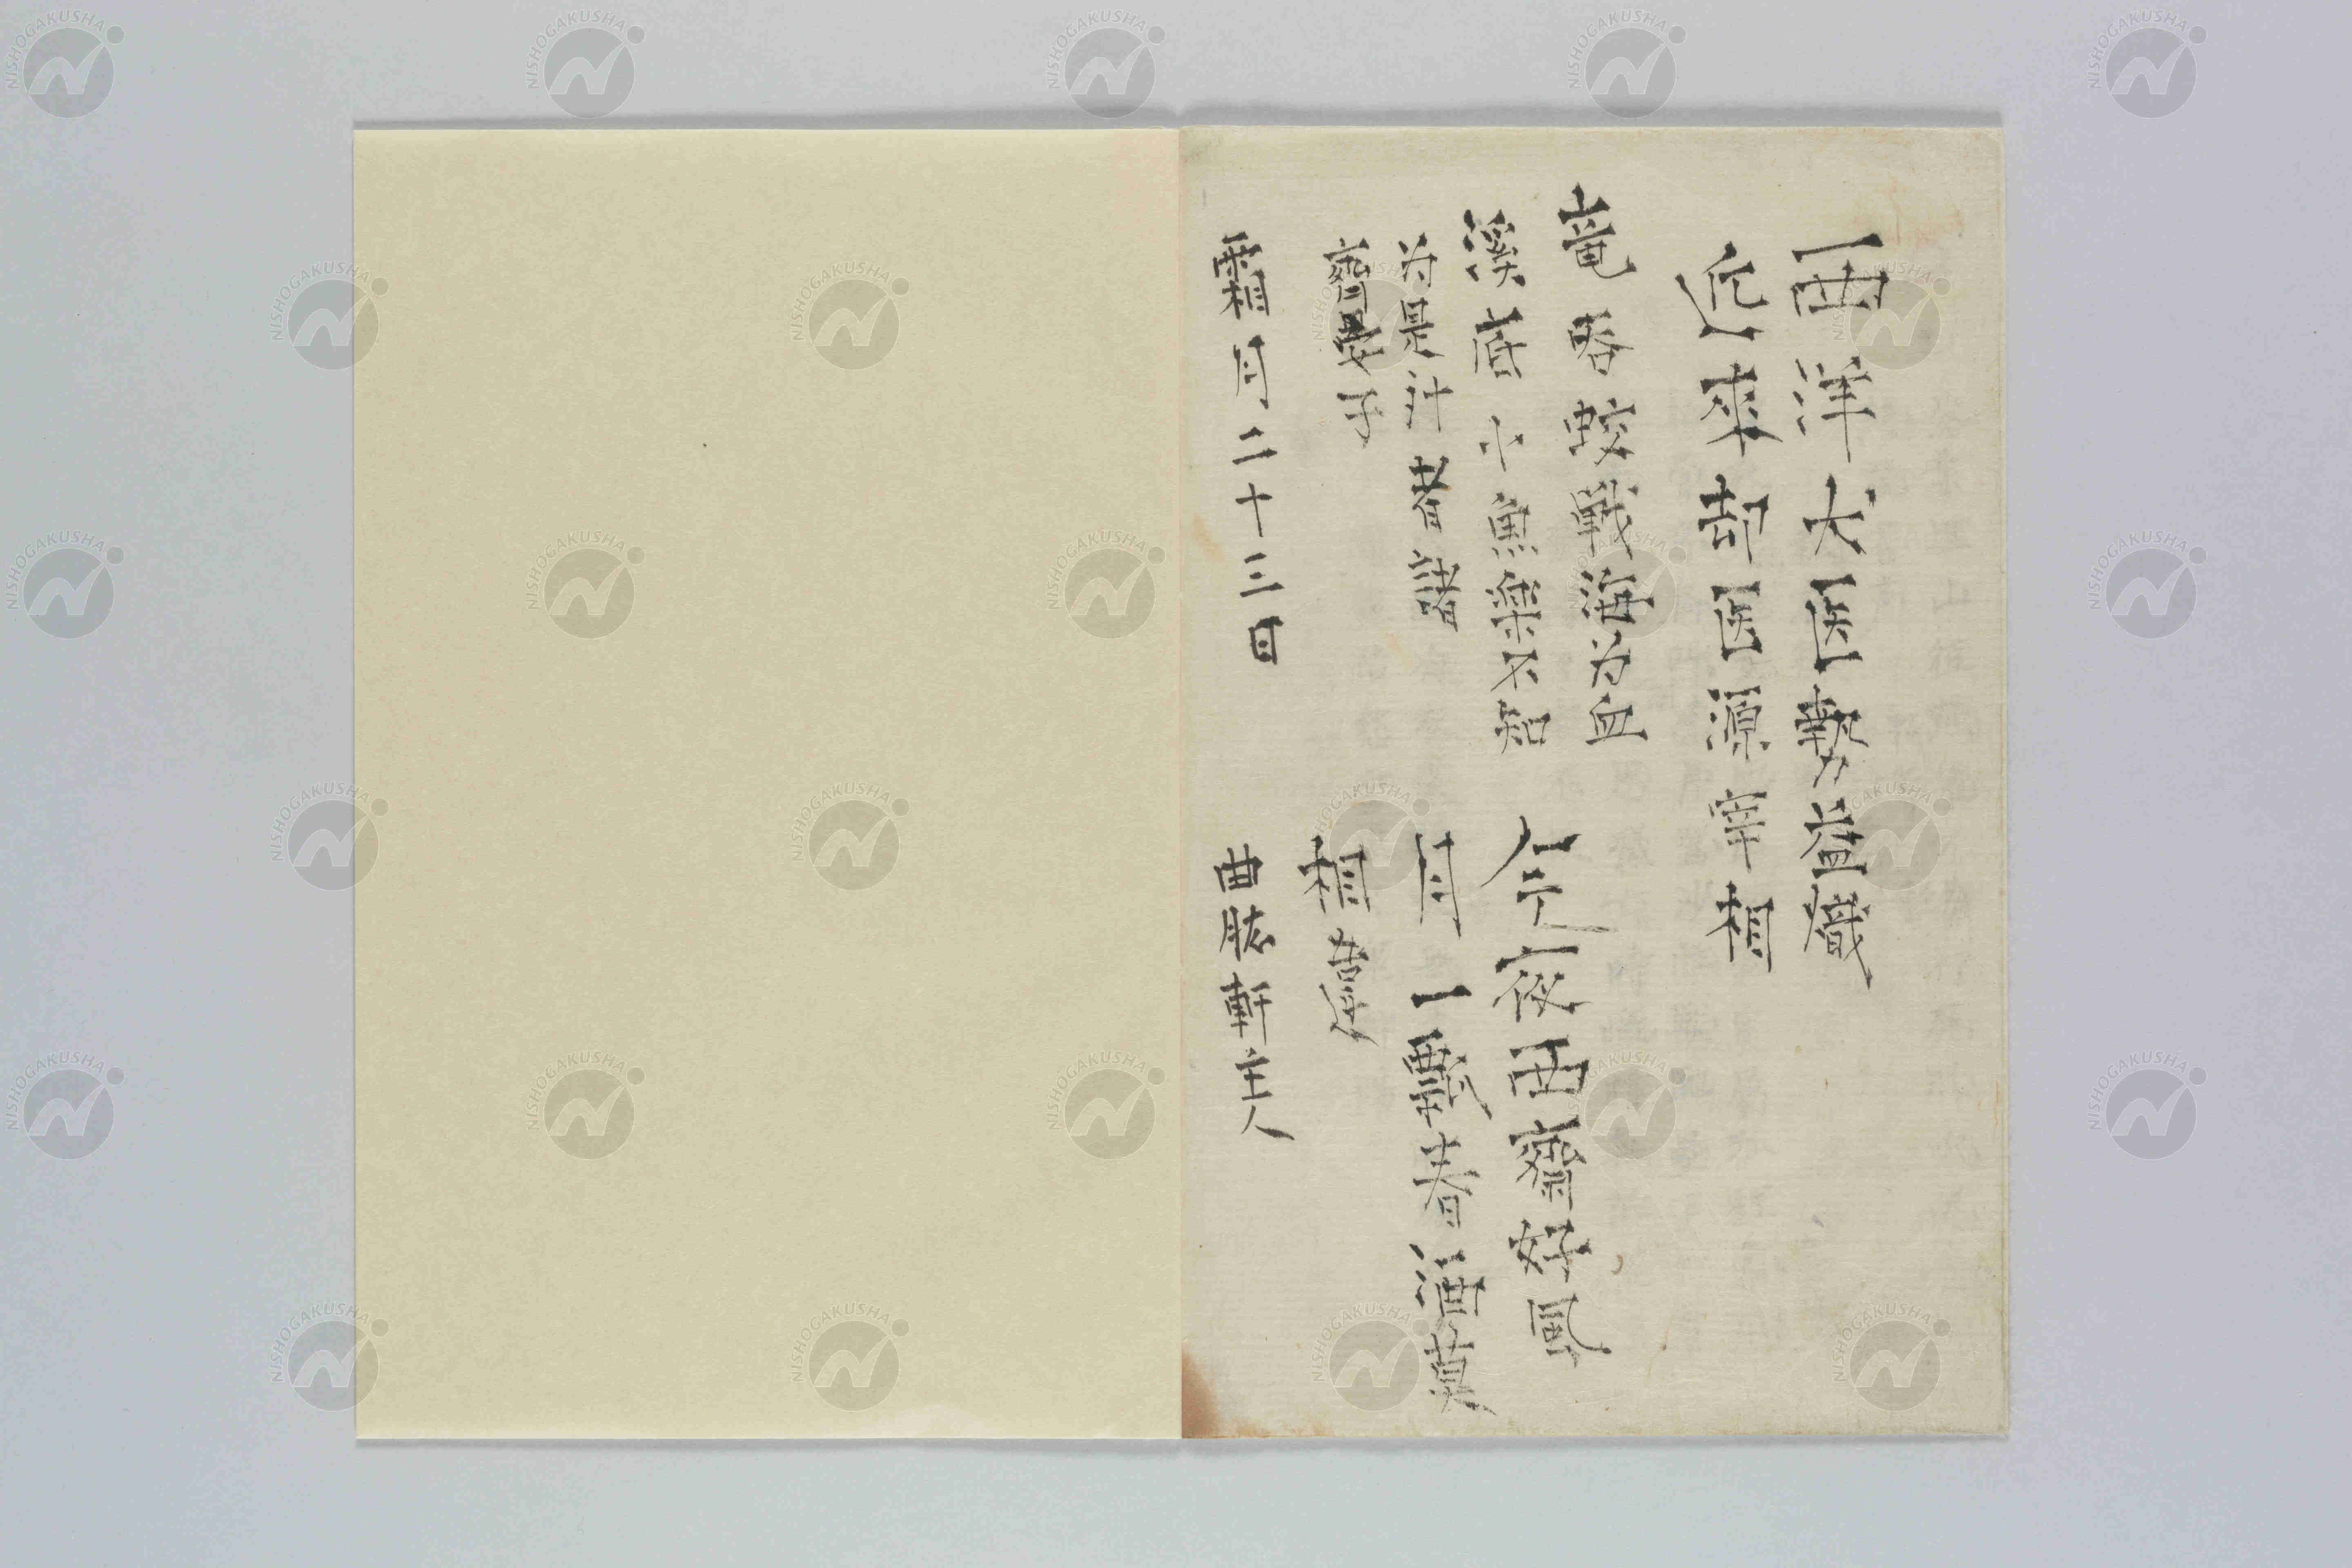 西洋犬医勢益熾
近来却医源宰相
竜吞蛟戦海为血
溪底小魚楽不知
为是計者諸
齊晏子
今夜西齋好風
月一瓢春酒莫
相違
霜月二十三日
曲肱軒主人